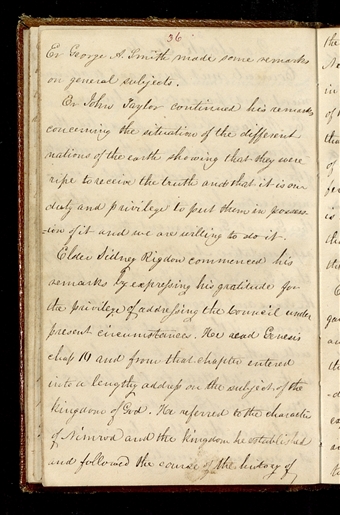 36
Er George A. Smith made some remarks
on general subjects.
Er John Taylor continued his remarks
concerning the situation of the different
nations of the earth showing that they were
ripe to receive the truth and that it is our
duty and privilege to put them in posses-
sion of it and we are willing to do it.
Elder Sidney Rigdon commenced his
remarks by expressing his gratitude for
the privilege of addressing the Council under
present circumstances. He read Genesis
chap 10 and from that chapter entered
into a lengthy address on the subject of the
kingdom of God. He referred to the character
of Nimrod and the kingdom he established
and followed the course of the history of